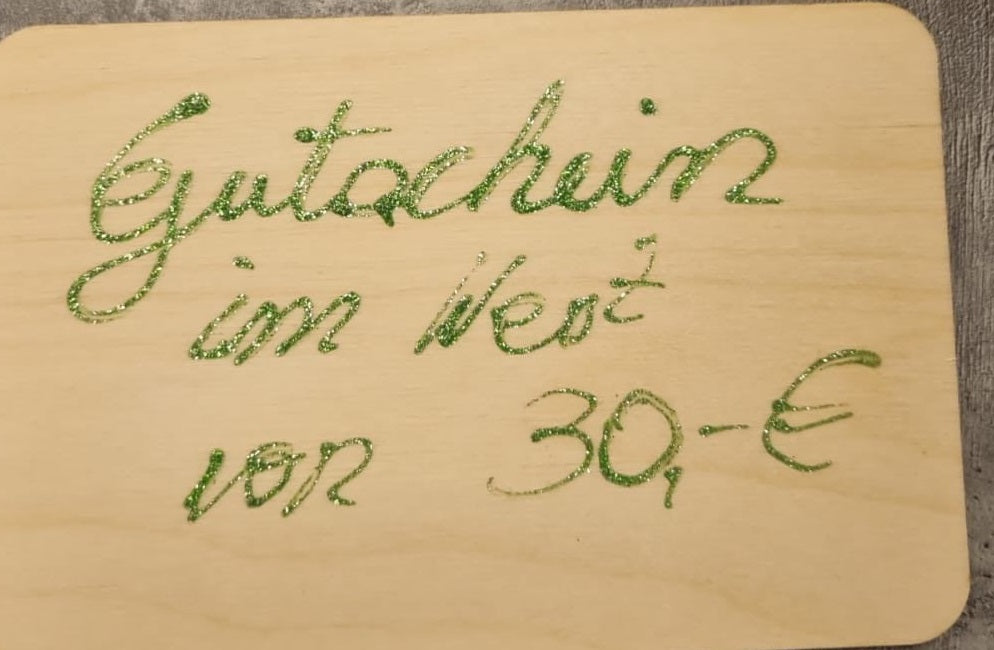 Gutschein
im Wert
von 30,-€